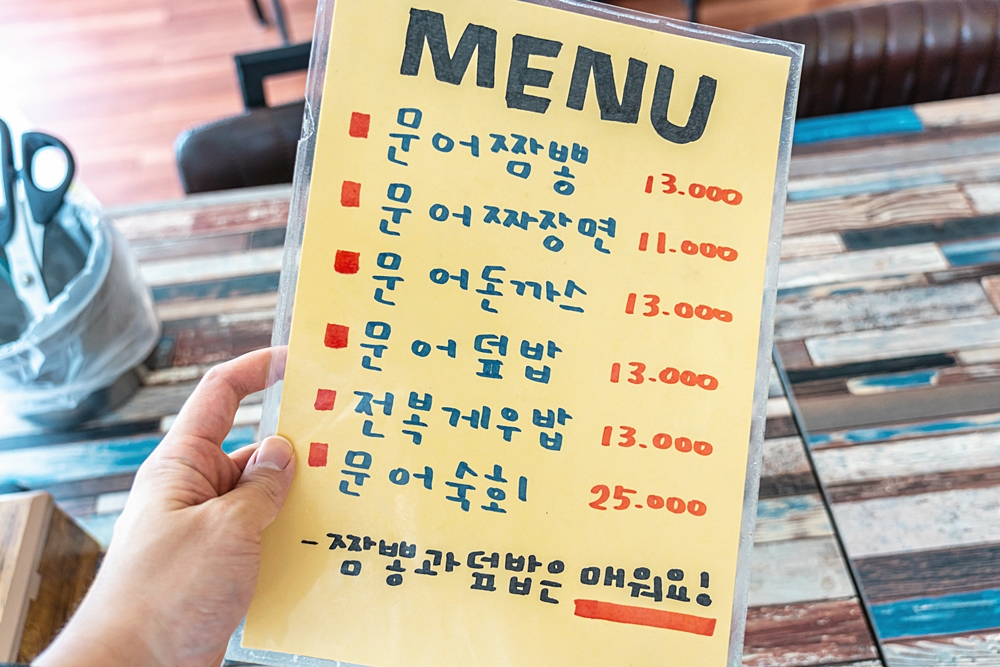 MENU
문어짬뽕 13.000
문어짜장면 11.000
문어돈까스 13.000
문어덮밥 13.000
전복게우밥 13.000
문어숙회 25.000
-짬뽕과덮밥은 매워요!